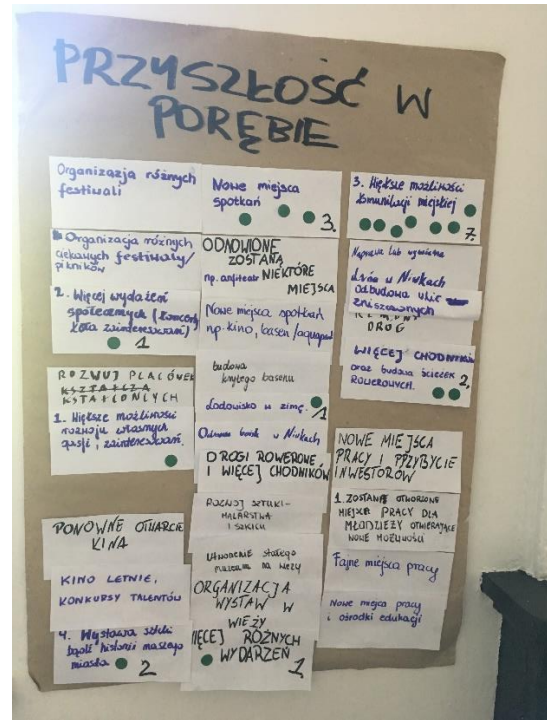 PRZYSZŁOŚĆ W
PORĘBIE
Organizazja różnych
festiwali
Organizacja różnych
ciekawych festiwali/
pikników
2. Więcej wydażeń
społecznych (koncerty,
koła zainteresowań)
1
ROZWUJ PLACÓWEK
KSZTAŁCZA
KSTAŁCONLYCH
1. Większe możliwości
rozwoju własnych
pasji, zainteresowań.
PONOWNE OTWARCIE
KINA
KINO LETNIE,
KONKURSY TALENTÓW
4. Wystawa sztuki
bądź historii naszego
miasta
2
Nowe miejsca
spotkań
3.
ODNOWIONE
ZOSTANĄ
np. amfiteatr NIEKTÓRE
MIEJSCA
Nowe miejsca spotkań
np. kino, basen/aquapark
budowa
krytego basenu
Lodowisko w zimę.
1
w Niwkach
DROGI ROWEROWE
I WIĘCEJ CHODNIKÓW
ROZWOJ SZTUKI-
MALARSTWA
I SZKICU
Utworzenie stałego
muzeum na wieży
ORGANIZACJA
WYSTAW W
WIEŻY
WIĘCEJ RÓŻNYCH
WYDARZEŃ
1
3. Większe możliwości
komunikacji miejskiej
7.
Naprawa lub
w Niwkach
odbudowa ulic
zniszczonych
REMONT
DRÓG
WIĘCEJ CHODNIKÓW
oraz budowa ścieżek
ROWEROWYCH.
2,
NOWE MIEJSCA
PRACY I PRZYBYCIE
INWESTORÓW
1. ZOSTANĄ OTWORZONE
MIEJSCA PRACY DLA
MŁODZIEŻY OTWIERAJĄCE
NOWE MOŻLIWOŚCI
Fajne miejsca pracy
Nowe miejsca pracy
i ośrodki edukacji